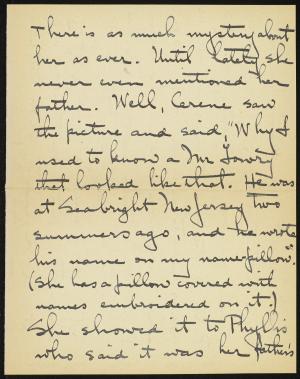 There is as much mystery about
her as ever. Until lately she
never even mentioned her
father. Well, Cerene saw
the picture and said, "Why I
used to know a Mr Lowry
that looked like that. He was
at Seabright New Jersey two
summers ago, and he wrote
his name on my name pillow".
(She has a pillow covered with
names embroidered on it.)
She showed it to Phyllis
who said it was her father's